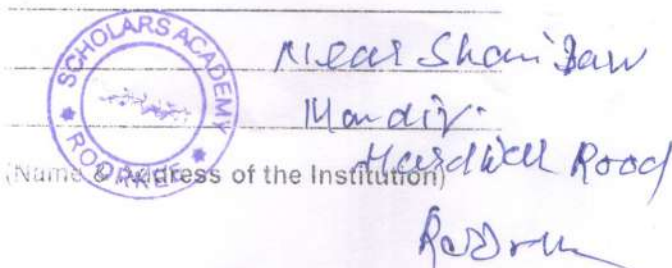 SCHOLARS ACADEMY
ROORKEE
Near Shani Dav
Mandir
Hardwar Road
(Name & Address of the Institution)
Roorkee